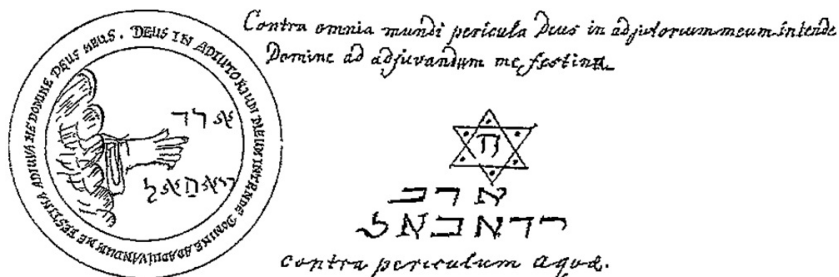 DEUS IN ADIUTORIUM MEUM INTENDE DOMINE AD ADIUVANDUM ME FESTINA ADIUVA ME DOMINE DEUS MEUS .
Contra omnia mundi pericula Deus in adjutorium meum intende
Domine ad adjuvandum me festina.
contra periculum aquæ.